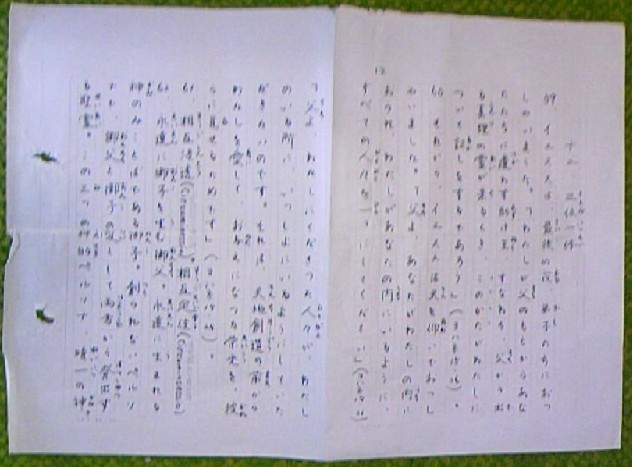 十二 三位一体
59. イエスは、最後の夜、弟子たちにおっ
しゃいました。「わたしが父のもとからあな
たたちに遣わす助け主、すなわち、父から出
る真理の霊が来るとき、このかたがわたしに
ついて証しをするであろう」
60. それから、イエスは天を仰いでおっし
ゃいました。「父よ、あなたがわたしの内に
おられ、わたしがあなたの内にいるように、
すべての人々を一つにしてください」
12
「父よ、わたしにくださった人々が、わたし
のいる所に、いっしょにいるようにしていた
だきたいのです。それは、天地創造の前から
わたしを愛して、お与えになった栄光を、彼
らに見せるためです。」
61. 相互浸透 相互定住
62. 永遠に御子を生む御父。永遠に生まれる
神のみことばである御子。創られないペルソ
ナで、御父と御子の愛として両者から発出す
る聖霊。この三つの神的ペルソナ、唯一の神。